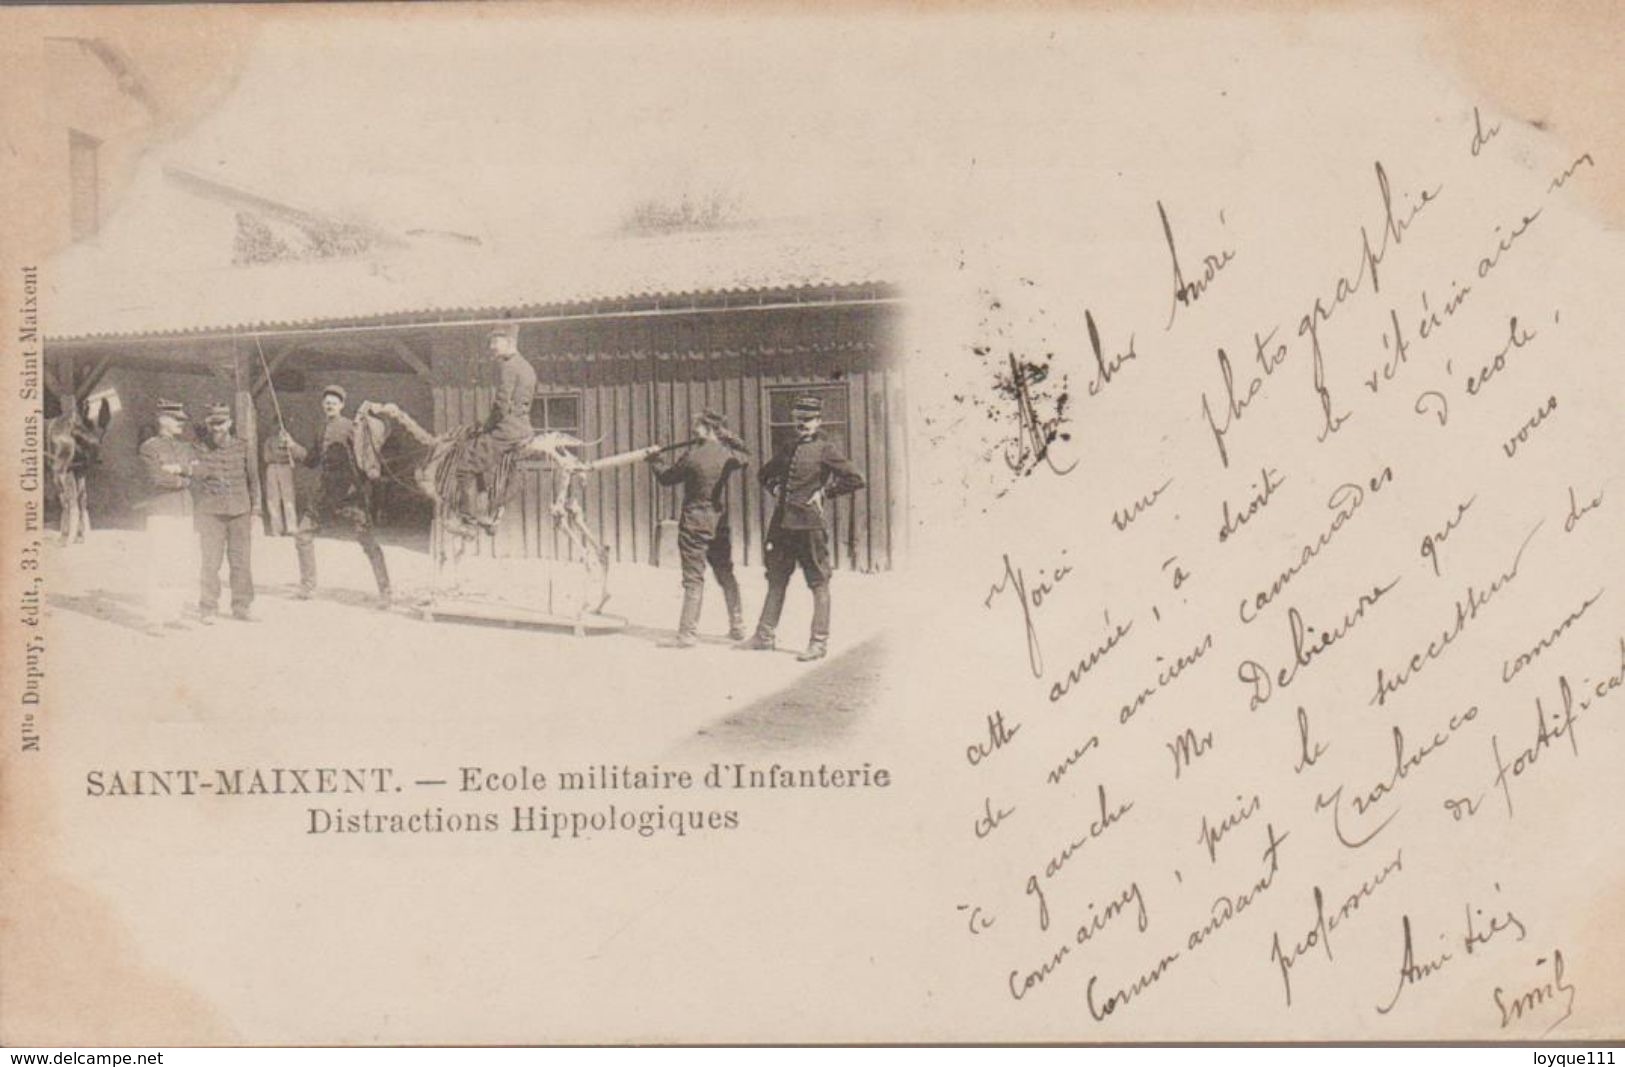 Mlle Dupuy, édit., 33, rue Châlons, Saint Maixent
SAINT-MAIXENT. — Ecole militaire d'Infanterie
Distractions Hippologiques
Mon cher André
Voici une photographie de
cette année, à droite le vétérinaire un
de mes anciens camarades d'école,
à gauche Mr Debieuvre que vous
connaissez, puis le successeur du
Commandant Trabucco comme
professeur de fortificat
Amitiés
Emile
www.delcampe.net
loyque111